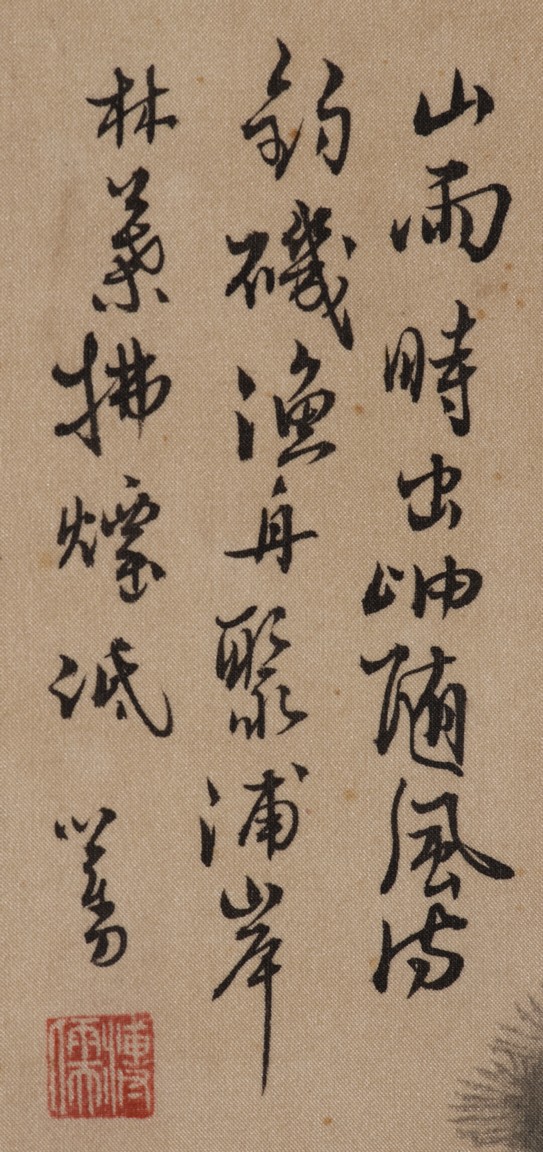 山雨時出岫隨風滿
釣磯漁舟聚浦岸
林葉拂煙低
心畬
溥儒